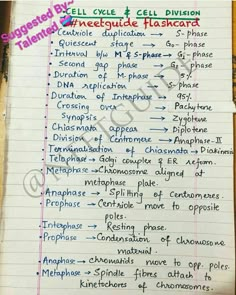 Suggested By-
Talented
CELL CYCLE & CELL DIVISION
#neetguide flashcard
• Centriole duplication → S-phase
• Quiescent stage → G₀-phase
• Interval b/w M & S-phase → G₁-phase
• Second gap phase → G₂-phase
• Duration of M-phase → 5%
• DNA replication → S-phase
• Duration of Interphase → 95%
• Crossing over → Pachytene
• Synapsis → Zygotene
• Chiasmata appear → Diplotene
• Division of Centromere → Anaphase-II
• Terminalisation of chiasmata → Diakinesis
• Telophase → Golgi complex & ER reform.
• Metaphase → Chromosome aligned at
metaphase plate.
• Anaphase → Splitting of Centromeres.
• Prophase → Centriole move to opposite
poles.
• Interphase → Resting phase.
• Prophase → Condensation of chromosome
material.
• Anaphase → chromatids move to opp. poles.
• Metaphase → Spindle fibres attach to
kinetochores of chromosomes.